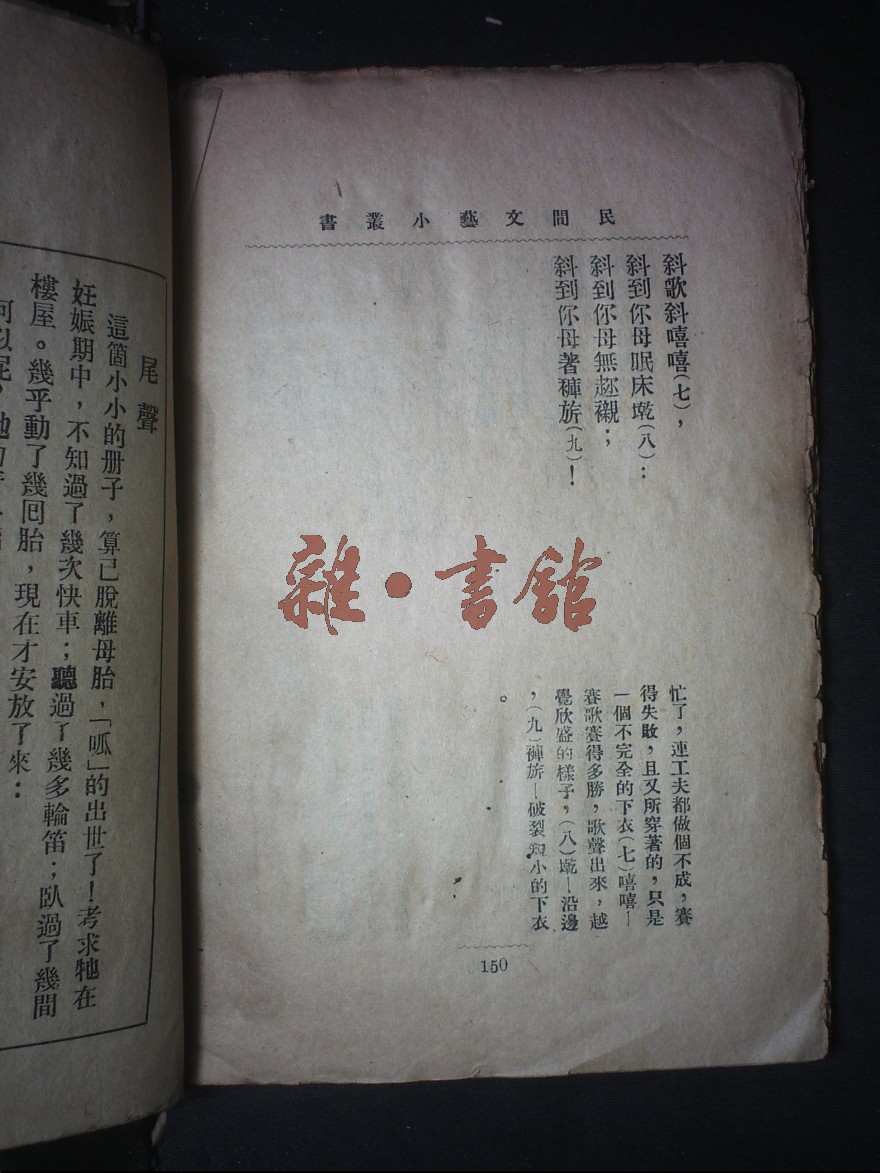 民間文藝小叢書
斜歌斜嘻嘻(七)，
斜到你母眠床墘(八)：
斜到你母無
斜到你母著褲旂(九)！
忙了，連工夫都做個不成，賽
得失敗，且又所穿著的，只是
一個不完全的下衣(七)嘻嘻—
賽歌賽得多勝，歌聲出來，越
覺欣盛的樣子，(八)墘—沿邊
，(九)褲旂—破裂短小的下衣
。
150
雜·書館
尾聲
這箇小小的册子，算已脫離母胎，「呱」的出世了！考求牠在
妊娠期中，不知過了幾次快車；聽過了幾多輪笛；臥過了幾間
樓屋。幾乎動了幾囘胎，現在才安放了來：